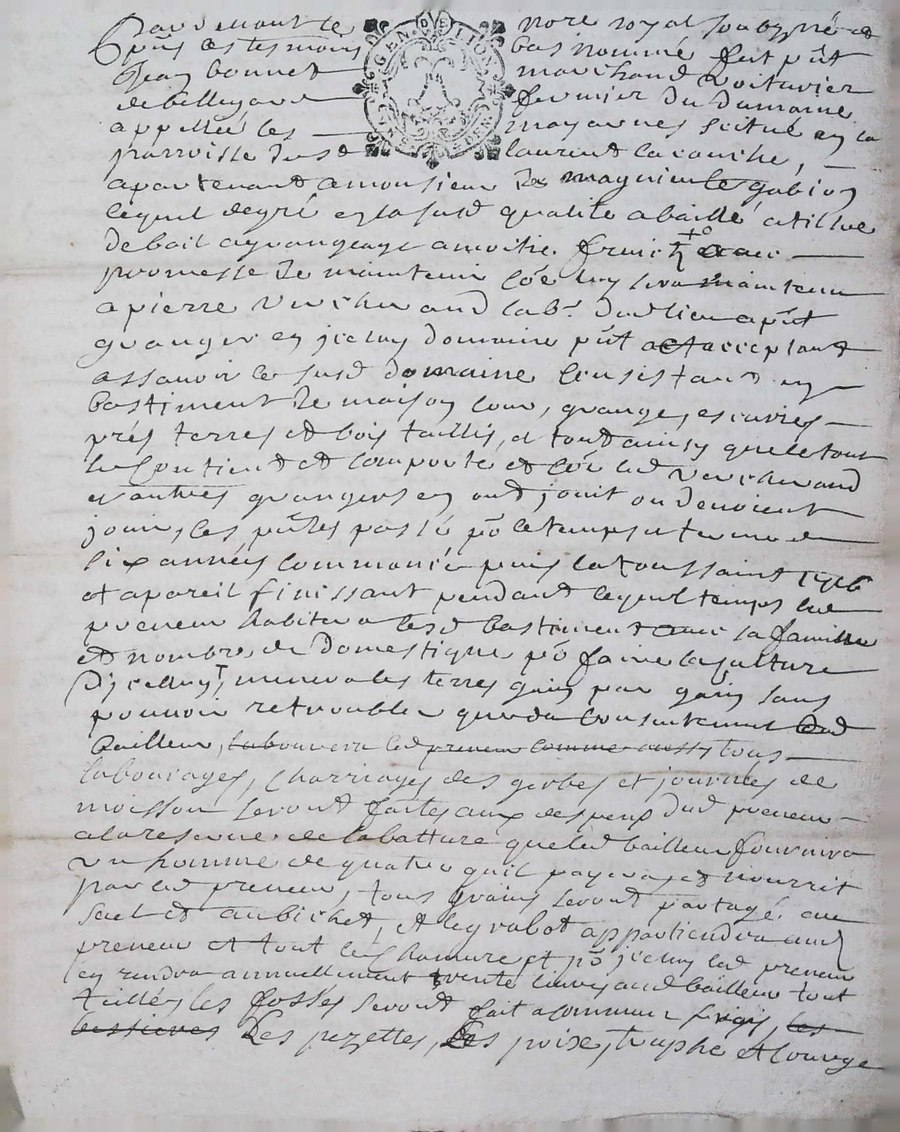 Pardevant le notre royal soubzné et
puis les tesmoins bas nommé fut pnt
Jean bonnet marchand voiturier
de bellegarde fermier du Domaine
appellée les mayannes scitué en la
parroisse du st laurent la conche,
apartenant a monsieur De magnieu le gabion
lequel de gré en la susd qualité a baillé a tiltre
de bail a grangeage a moitie fruict avec
promesse de maintenir côe luy sera maintenu
a pierre Vercherand lab.r dud lieu a pnt
granger en jceluy domaine pnt et acceptant
assavoir le susd domaine Consistant en
bastiment de maison cour, grange, escuries
prés terres et bois taillis, et tout ainsy que le tout
se Contient et comporte et côe led Vercherand
et autres grangers en ont jouit ou deuoient
jouir, les pntes passé pò le temps et terme de
six années commancée puis la toussaint 1716
et a pareil finissant pendant lequel temps led
preneur habitera lesd bastiment avec sa famille
et nombre de Domestique pò faire la culture
D'jcelluy, menera les terres gain par gain sans
pouuoir retroubler que du Consentement dud
Bailleur, labourera led preneur comme aussy tous
labourages, Charriages des gerbes et journées de
moisson seront faites aux despens dud preneur
a la reserue de la batture que led bailleur fournira
un homme de quatre qu'il payera et nourrit
par led preneur, tous grains seront partagé au
sacl et au bichet, et le grabot appartiendra aud
preneur et tout le Chanure et pò jceluy led preneur
en rendra annuellement trente liures aud bailleur tout
teillé, les fosses seront fait a commun frais, les
bessieres Les pezettes, Les poix, truphe et courge
GEN. DE LION